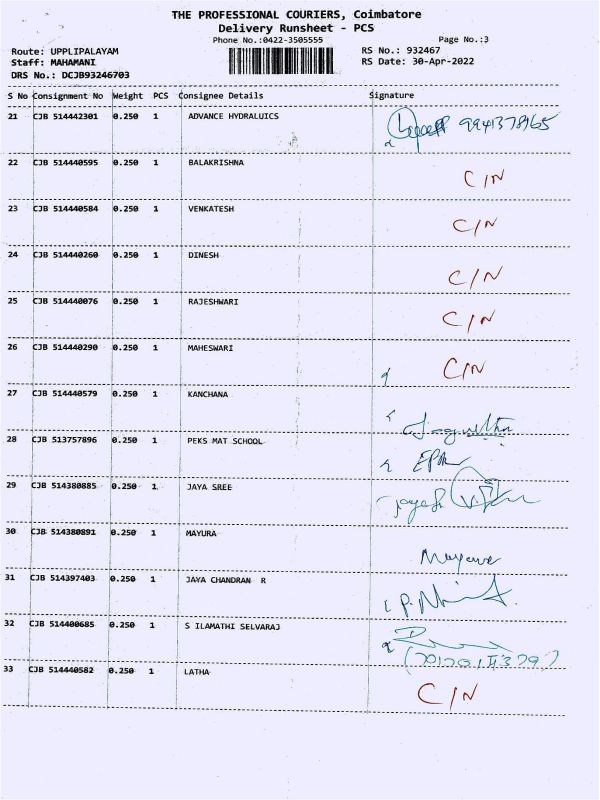 THE PROFESSIONAL COURIERS, Coimbatore
Delivery Runsheet - PCS
Phone No.:0422-3505555 Page No.:3
Route: UPPLIPALAYAM RS No.: 932467
Staff: MAHAMANI RS Date: 30-Apr-2022
DRS No.: DCJB93246703
S No Consignment No Weight PCS Consignee Details Signature
21 CJB 514442301 0.250 1 ADVANCE HYDRALUICS
22 CJB 514440595 0.250 1 BALAKRISHNA C/N
23 CJB 514440584 0.250 1 VENKATESH C/N
24 CJB 514440260 0.250 1 DINESH C/N
25 CJB 514440076 0.250 1 RAJESHWARI C/N
26 CJB 514440290 0.250 1 MAHESWARI C/N
27 CJB 514440579 0.250 1 KANCHANA
28 CJB 513757896 0.250 1 PEKS MAT SCHOOL
29 CJB 514380885 0.250 1 JAYA SREE
30 CJB 514380891 0.250 1 MAYURA
31 CJB 514397403 0.250 1 JAYA CHANDRAN R
32 CJB 514400685 0.250 1 S ILAMATHI SELVARAJ
33 CJB 514440582 0.250 1 LATHA C/N